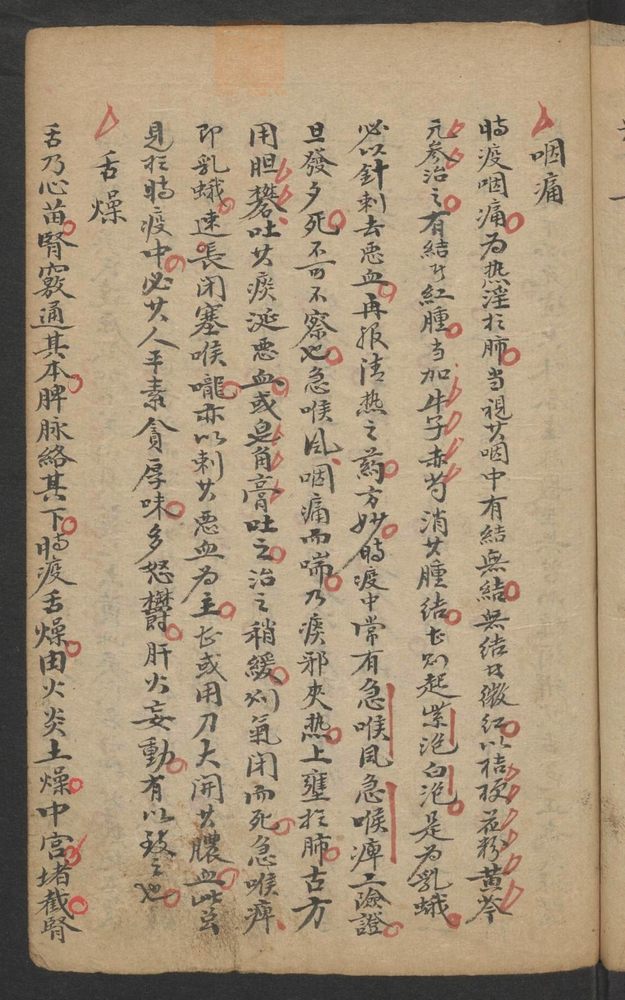 咽痛
時疫咽痛為热淫扵肺当視其咽中有結無結無結者微紅以桔梗花粉黄芩
元参治之有結者紅腫当加牛子赤芍消其腫結甚則起紫泡白泡是為乳蛾
必以針刺去悪血再服清热之药方妙時疫中常有急喉风急喉痺二險證
旦發夕死不可不察也急喉风咽痛而喘乃痰邪夾热上壅扵肺古方
用胆礬吐其痰涎悪血或皂角膏吐之治之稍緩則氣闭而死急喉痺
即乳蛾速長闭塞喉嚨亦以刺其悪血为主甚或用刀大開其膿血此皆
見扵時疫中必其人平素貪厚味多怒欝肝火妄動有以致之也
舌燥
舌乃心苗腎竅通其本脾脉絡其下時疫舌燥由火炎土燥中宫堵截腎